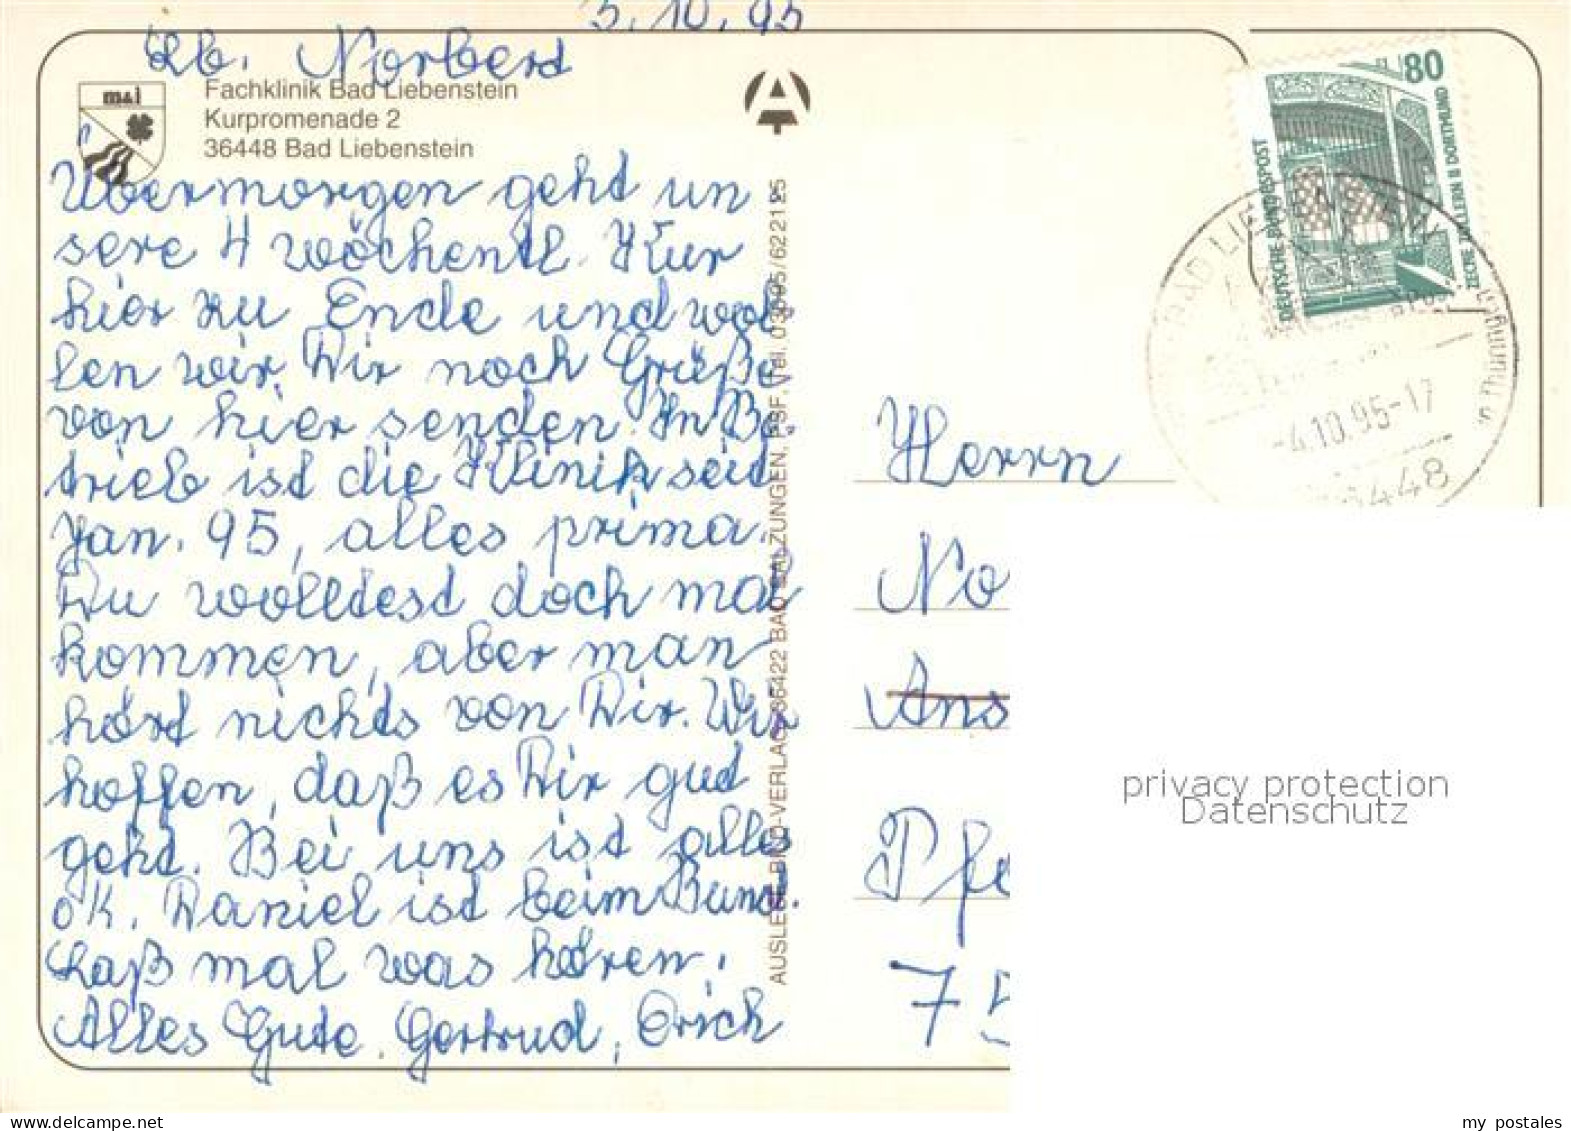 3.10.95
Lb. Norbert
m&i
Fachklinik Bad Liebenstein
Kurpromenade 2
36448 Bad Liebenstein
Übermorgen geht un
sere 4 wöchentl. Kur
hier zu Ende und wol
len wir Dir noch Grüße
von hier senden. In Be
trieb ist die Klinik seit
Jan. 95, alles prima.
Du wolltest doch mal
kommen, aber man
hört nichts von Dir. Wir
hoffen, daß es Dir gut
geht. Bei uns ist alles
ok. Daniel ist beim Bund.
Laß mal was hören.
Alles Gute. Gertrud, Erich
AUSLESE-BILD-VERLAG, 36422 BAD SALZUNGEN, PSF, Tel. 03695/622125
80
DEUTSCHE BUNDESPOST
ZECHE ZOLLERN II DORTMUND
BAD LIEBENSTEIN
-4.10.95-17
36448
Herrn
No
Ans
Pfe
75
privacy protection
Datenschutz
my postales